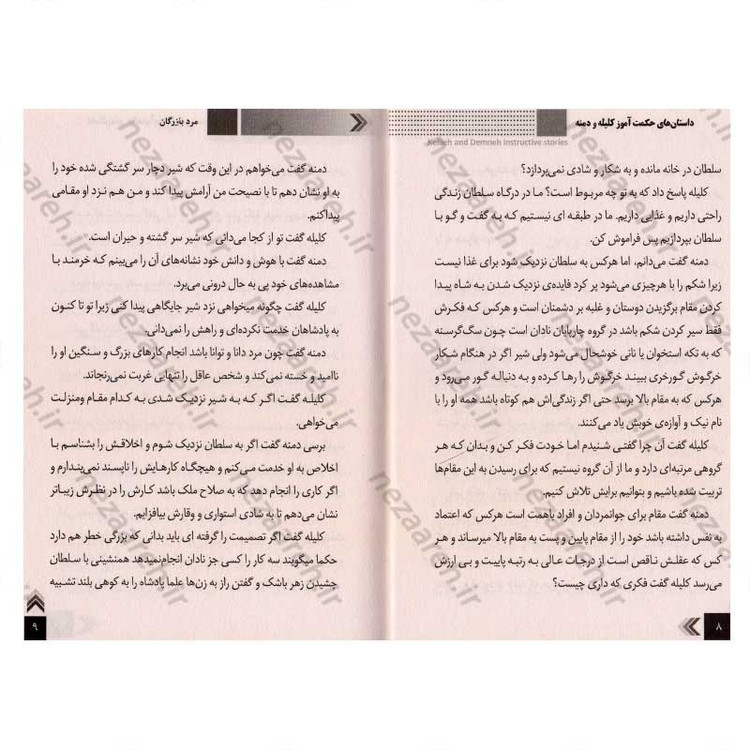 داستان‌های حکمت آموز کلیله و دمنه
Kelileh and Demneh instructive stories
سلطان در خانه مانده و به شکار و شادی نمی‌پردازد؟
کلیله پاسخ داد که به تو چه مربوط است؟ ما در درگاه سلطان زندگی
راحتی داریم و غذایی داریم. ما در طبقه ای نیستیم که به گفت و گو با
سلطان بپردازیم پس فراموش کن.
دمنه گفت می‌دانم، اما هرکس به سلطان نزدیک شود برای غذا نیست
زیرا شکم را با هرچیزی می‌شود پر کرد فایده‌ی نزدیک شدن به شاه پیدا
کردن مقام برگزیدن دوستان و غلبه بر دشمنان است و هرکس که فکرش
فقط سیر کردن شکم باشد در گروه چارپایان نادان است چون سگ‌گرسنه
که به تکه استخوان یا نانی خوشحال می‌شود ولی شیر اگر در هنگام شکار
خرگوش گورخری ببیند خرگوش را رها کرده و به دنباله گور می‌رود و
هرکس که به مقام بالا برسد حتی اگر زندگی‌اش هم کوتاه باشد همه او را با
نام نیک و آوازه‌ی خوبش یاد می‌کنند.
کلیله گفت آن چرا گفتی شنیدم اما خودت فکر کن و بدان که هر
گروهی مرتبه‌ای دارد و ما از آن گروه نیستیم که برای رسیدن به این مقام‌ها
تربیت شده باشیم و بتوانیم برایش تلاش کنیم.
دمنه گفت مقام برای جوانمردان و افراد باهمت است هرکس که اعتماد
به نفس داشته باشد خود را از مقام پایین و پست به مقام بالا میرساند و هر
کس که عقلش ناقص است از درجات عالی به رتبه پاییت و بی ارزش
می‌رسد کلیله گفت فکری که داری چیست؟
۸
مرد بازرگان
دمنه گفت می‌خواهم در این وقت که شیر دچار سر گشتگی شده خود را
به او نشان دهم تا با نصیحت من آرامش پیدا کند و من هم نزد او مقامی
پیداکنم.
کلیله گفت تو از کجا می‌دانی که شیر سر گشته و حیران است.
دمنه گفت با هوش و دانش خود نشانه‌های آن را می‌بینم که خرمند با
مشاهده‌های خود پی به حال درونی می‌برد.
کلیله گفت چگونه میخواهی نزد شیر جایگاهی پیدا کنی زیرا تو تا کنون
به پادشاهان خدمت نکرده‌ای و راهش را نمی‌دانی.
دمنه گفت چون مرد دانا و توانا باشد انجام کارهای بزرگ و سنگین او را
ناامید و خسته نمی‌کند و شخص عاقل را تنهایی غربت نمی‌رنجاند.
کلیله گفت اگر که به شیر نزدیک شدی به کدام مقام ومنزلت
می‌خواهی.
برسی دمنه گفت اگر به سلطان نزدیک شوم و اخلاقش را بشناسم با
اخلاص به او خدمت می‌کنم و هیچگاه کارهایش را ناپسند نمی‌پندارم و
اگر کاری را انجام دهد که به صلاح ملک باشد کارش را در نظرش زیباتر
نشان می‌دهم تا به شادی استواری و وقارش بیافزایم.
کلیله گفت اگر تصمیمت را گرفته ای باید بدانی که بزرگی خطر هم دارد
حکما میگویند سه کار را کسی جز نادان انجام‌نمیدهد همنشینی با سلطان
چشیدن زهر باشک و گفتن راز به زن‌ها علما پادشاه را به کوهی بلند تشبیه
۹
nezaareh.ir